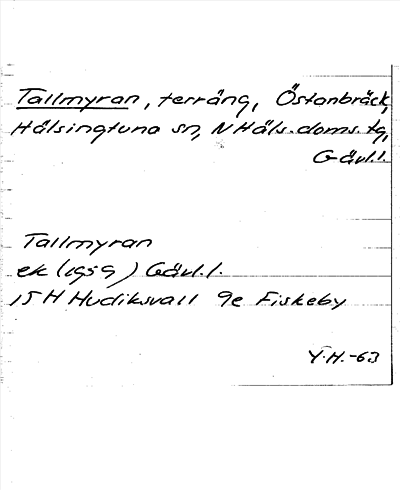 Tallmyran, terräng, Östanbräck,
Hälsingtuna sn, N Häls. doms. tg,
Gävl.l.
Tallmyran
ek (1959) Gävl.l.
15 H Hudiksvall 9e Fiskeby
Y.H.-63